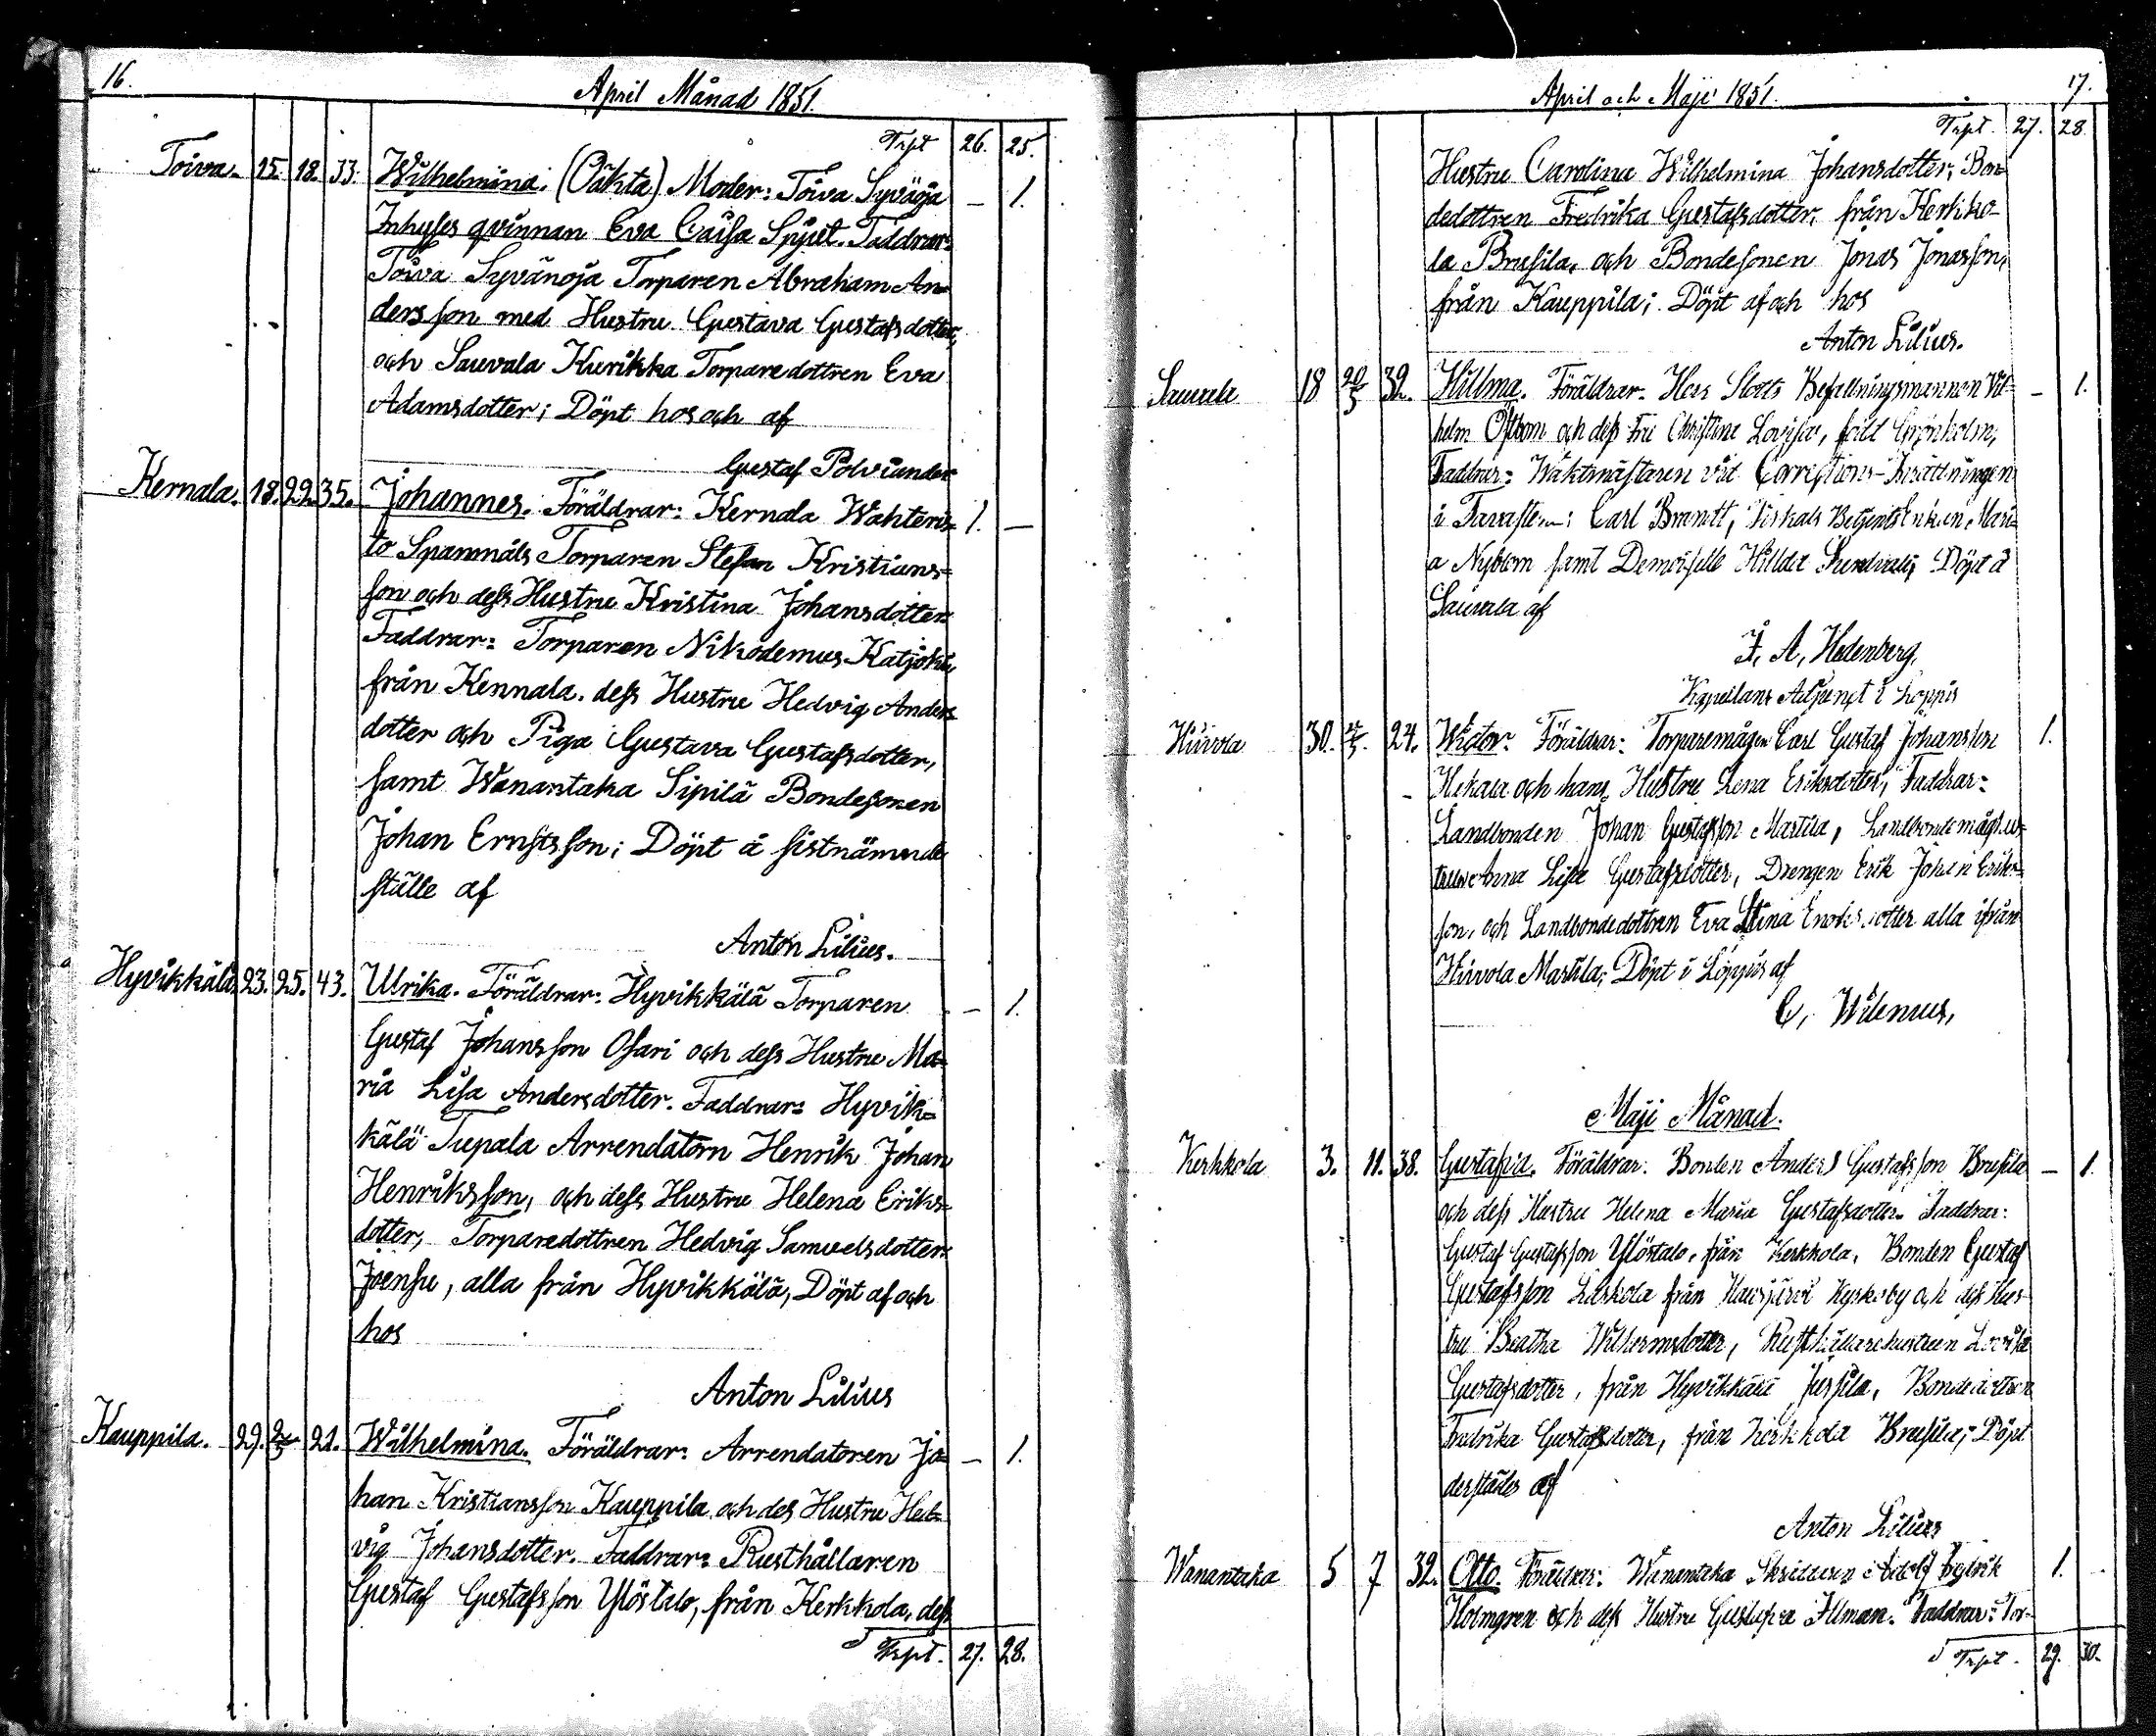 16.
April Månad 1851.
Trpt 26. 25.
Toiva. 15. 18. 33. Wilhelmina. (Oäkta) Moder: Toiva Syväoja — 1.
Inhyses qvinnan Eva Caisa Spjut. Faddrar:
Toiva Syvänoja Torparen Abraham An-
dersson med Hustru Gustava Gustafsdotter,
och Sauvala Kurikka Torparedottren Eva
Adamsdotter; Döpt hos och af
Gustaf Polviander
Kernala. 18. 22. 35. Johannes. Föräldrar: Kernala Wahteris- 1. —
to Spannmåls Torparen Stefan Kristians-
son och dess Hustru Kristina Johansdotter
Faddrar: Torparen Nikodemus Katjoki
från Kernala. dess Hustru Hedvig Anders
dotter och Piga Gustava Gustafsdotter,
samt Wanantaka Sipilä Bondesonen
Johan Ernstsson; Döpt å sistnämnde
ställe af
Anton Lilius.
Hyvikkälä 23. 25. 43. Ulrika. Föräldrar: Hyvikkälä Torparen — 1.
Gustaf Johansson Ojari och dess Hustru Ma-
ria Lisa Andersdotter. Faddrar: Hyvik-
kälä Tupala Arrendatorn Henrik Johan
Henriksson, och dess Hustru Helena Eriks-
dotter, Torparedottren Hedvig Samuelsdotter
Joensu, alla från Hyvikkälä, Döpt af och
hos
Anton Lilius
Kauppila. 29. 2/5 21. Wilhelmina. Föräldrar: Arrendatoren Jo- — 1.
han Kristiansson Kauppila och des Hustru Hed-
vig Johansdotter. Faddrar: Rusthållaren
Gustaf Gustafsson Ylöstalo, från Kerkkola, dess
Trpt. 27. 28.
April och Maji 1851. 17.
Trpt. 27. 28.
Hustru Carolina Wilhelmina Johansdotter; Bon-
dedottren Fredrika Gustafsdotter, från Kerkko-
la Brusila, och Bondesonen Jonas Jonasson,
från Kauppila; Döpt af och hos
Anton Lilius.
Sauvala 18 20/5 32. Hillma. Föräldrar. Herr Slotts Befallningsmannen Vil- — 1.
helm Öhbom och dess Fru Christina Lovisa, född Grönholm,
Faddrar: Waktmästaren vid Corrections-Inrättningen
i Tavastehus Carl Brandt, Fiskals Betjents Enkan Mari-
a Nyblom samt Demoiselle Hillda Sundvall; Döpt å
Sauvala af
F. A. Hedenberg,
Kapellans Adjunct i Loppis
Hirvola 30. 24. Victor. Föräldrar: Torparemågen Carl Gustaf Johansson 1.
Hekala och hans Hustru Lena Eriksdotter; Faddrar:
Landbonden Johan Gustafsson Martila, Landbondemågshus-
trun Anna Lisa Gustafsdotter, Drengen Erik Johan Eriks-
son, och Landbondedottren Eva Stina Enoksdotter alla ifrån
Hirvola Martila; Döpt i Loppis af
C. Wilenius.
Maji Månad.
Kerkkola 3. 11. 38. Gustafva. Föräldrar: Bonden Anders Gustafsson Brusila — 1.
och dess Hustru Helena Maria Gustafsdotter. Faddrar:
Gustaf Gustafsson Ylöstalo, från Kerkkola, Bonden Gustaf
Gustafsson Laskola från Hausjärvi Kyrkoby och dess Hus-
tru Beatha Wilhelmsdotter, Rusthållarehustrun Lovisa
Gustafsdotter, från Hyvikkälä Jussila, Bondedottren
Fredrika Gustafsdotter, från Kerkkola Brusila; Döpt
derstädes af
Anton Lilius
Wanantaka 5 7 32. Otto. Föräldrar: Wanantaka Skräddaren Adolf Fredrik 1.
Holmgren och dess Hustru Gustafva Illman. Faddrar: Tor-
Trpt. 29. 30.